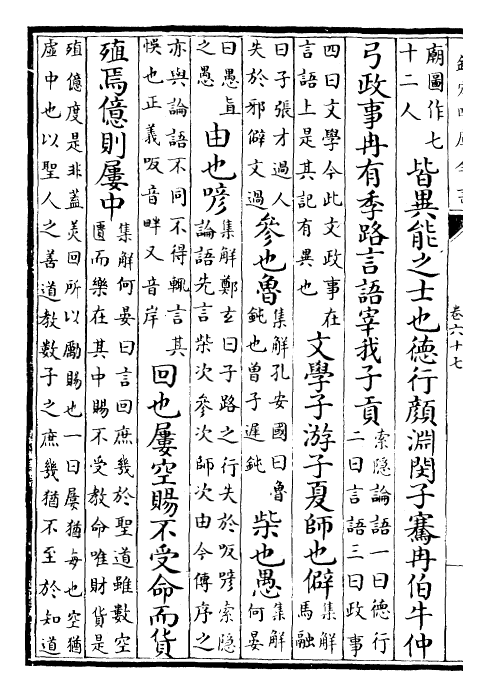 卷六十七
廟圖作七
十二人
皆異能之士也德行顏淵閔子騫冉伯牛仲
弓政事冉有季路言語宰我子貢
索隱論語一曰德行
二曰言語三曰政事
四曰文學今此文政事在
言語上是其記有異也
文學子游子夏師也僻
集解
馬融
曰子張才過人
失於邪僻文過
參也魯
集解孔安國曰魯
鈍也曾子遲鈍
柴也愚
集解
何晏
曰愚直
之愚
由也喭
集解鄭玄曰子路之行失於喭索隱
論語先言柴次參次師次由今傳序之
亦與論語不同不得輒言其
悞也正義音畔又音岸
回也屢空賜不受命而貨
殖焉億則屢中
集解何晏曰言回庶幾於聖道雖數空
匱而樂在其中賜不受教命唯財貨是
殖億度是非蓋美回所以勵賜也一曰屢猶每也空猶
虛中也以聖人之善道教數子之庶幾猶不至於知道